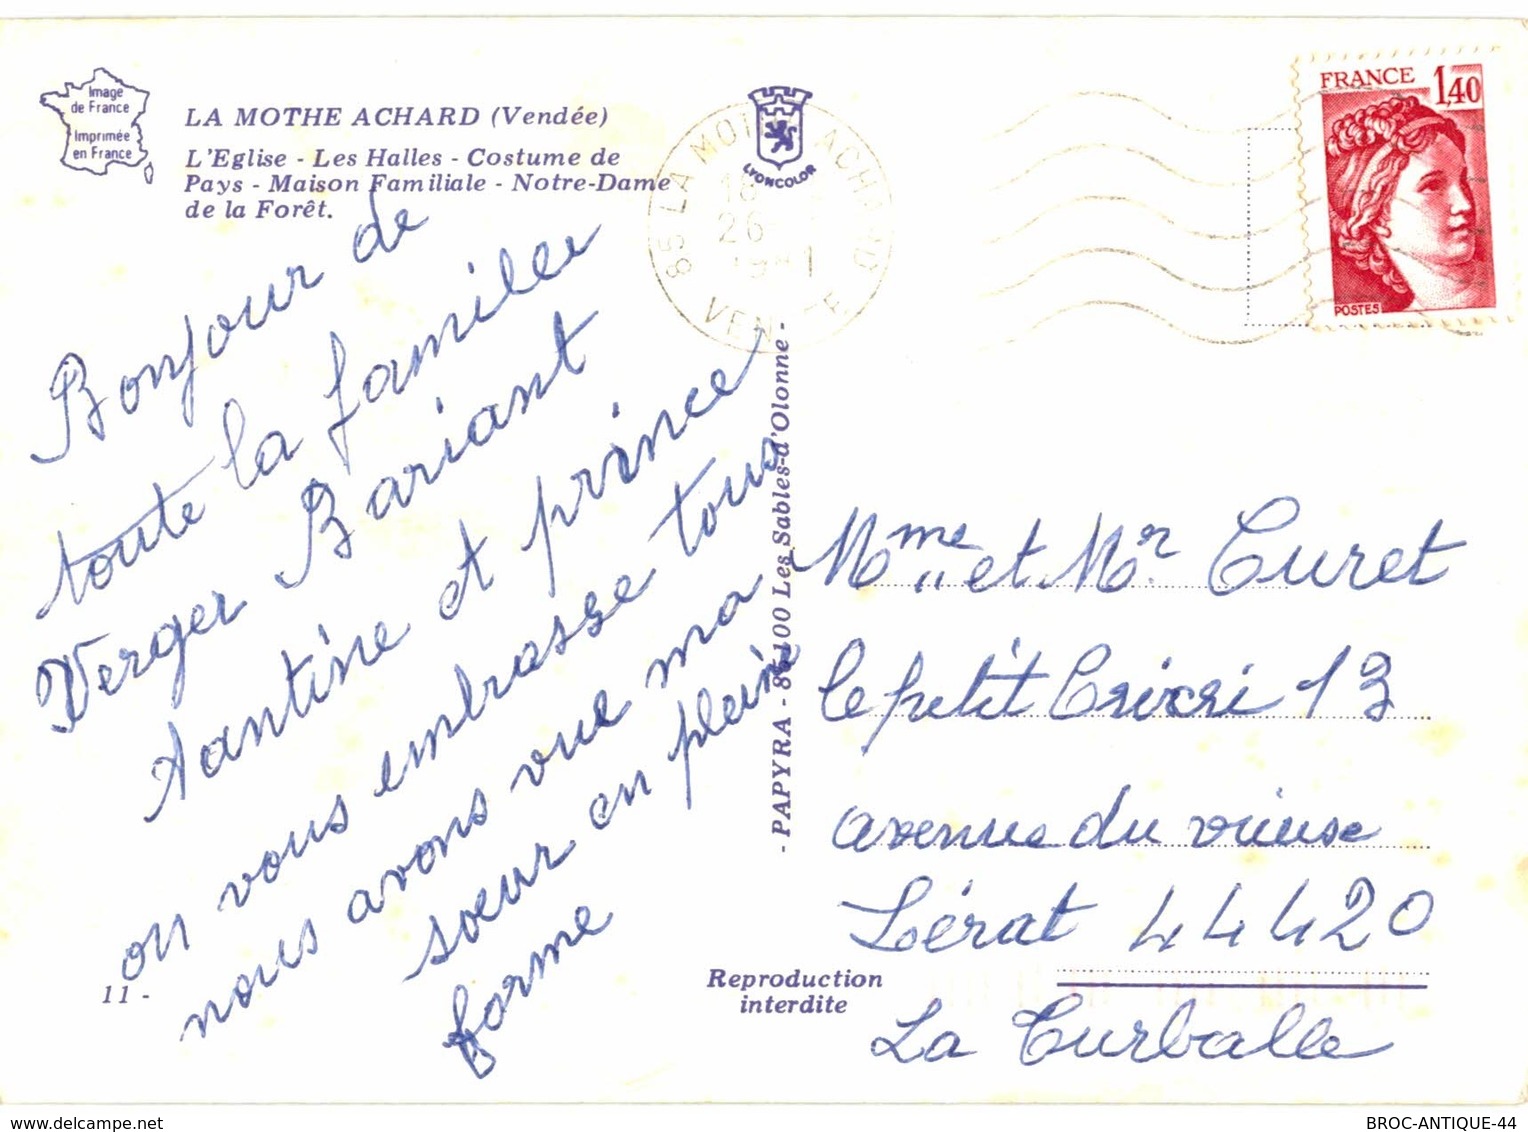 Image
de France
Imprimée
en France
LA MOTHE ACHARD (Vendée)
L'Eglise - Les Halles - Costume de
Pays - Maison Familiale - Notre-Dame
de la Forêt.
LYONCOLOR
85 LA MOTHE ACHARD
26
VENDEE
FRANCE 1,40
POSTES
Bonjour de
toute la famille
Verger Bariant
et prince
on vous embrasse tous
nous avons vue ma
soeur en plein
forme
- PAPYRA - 85100 Les Sables-d'Olonne -
Mme et Mr Curet
le petit Cricri 13
avenue du vieuse
Lérat 44420
La Turballe
11 -
Reproduction
interdite
delcampe.net
BROC-ANTIQUE-44